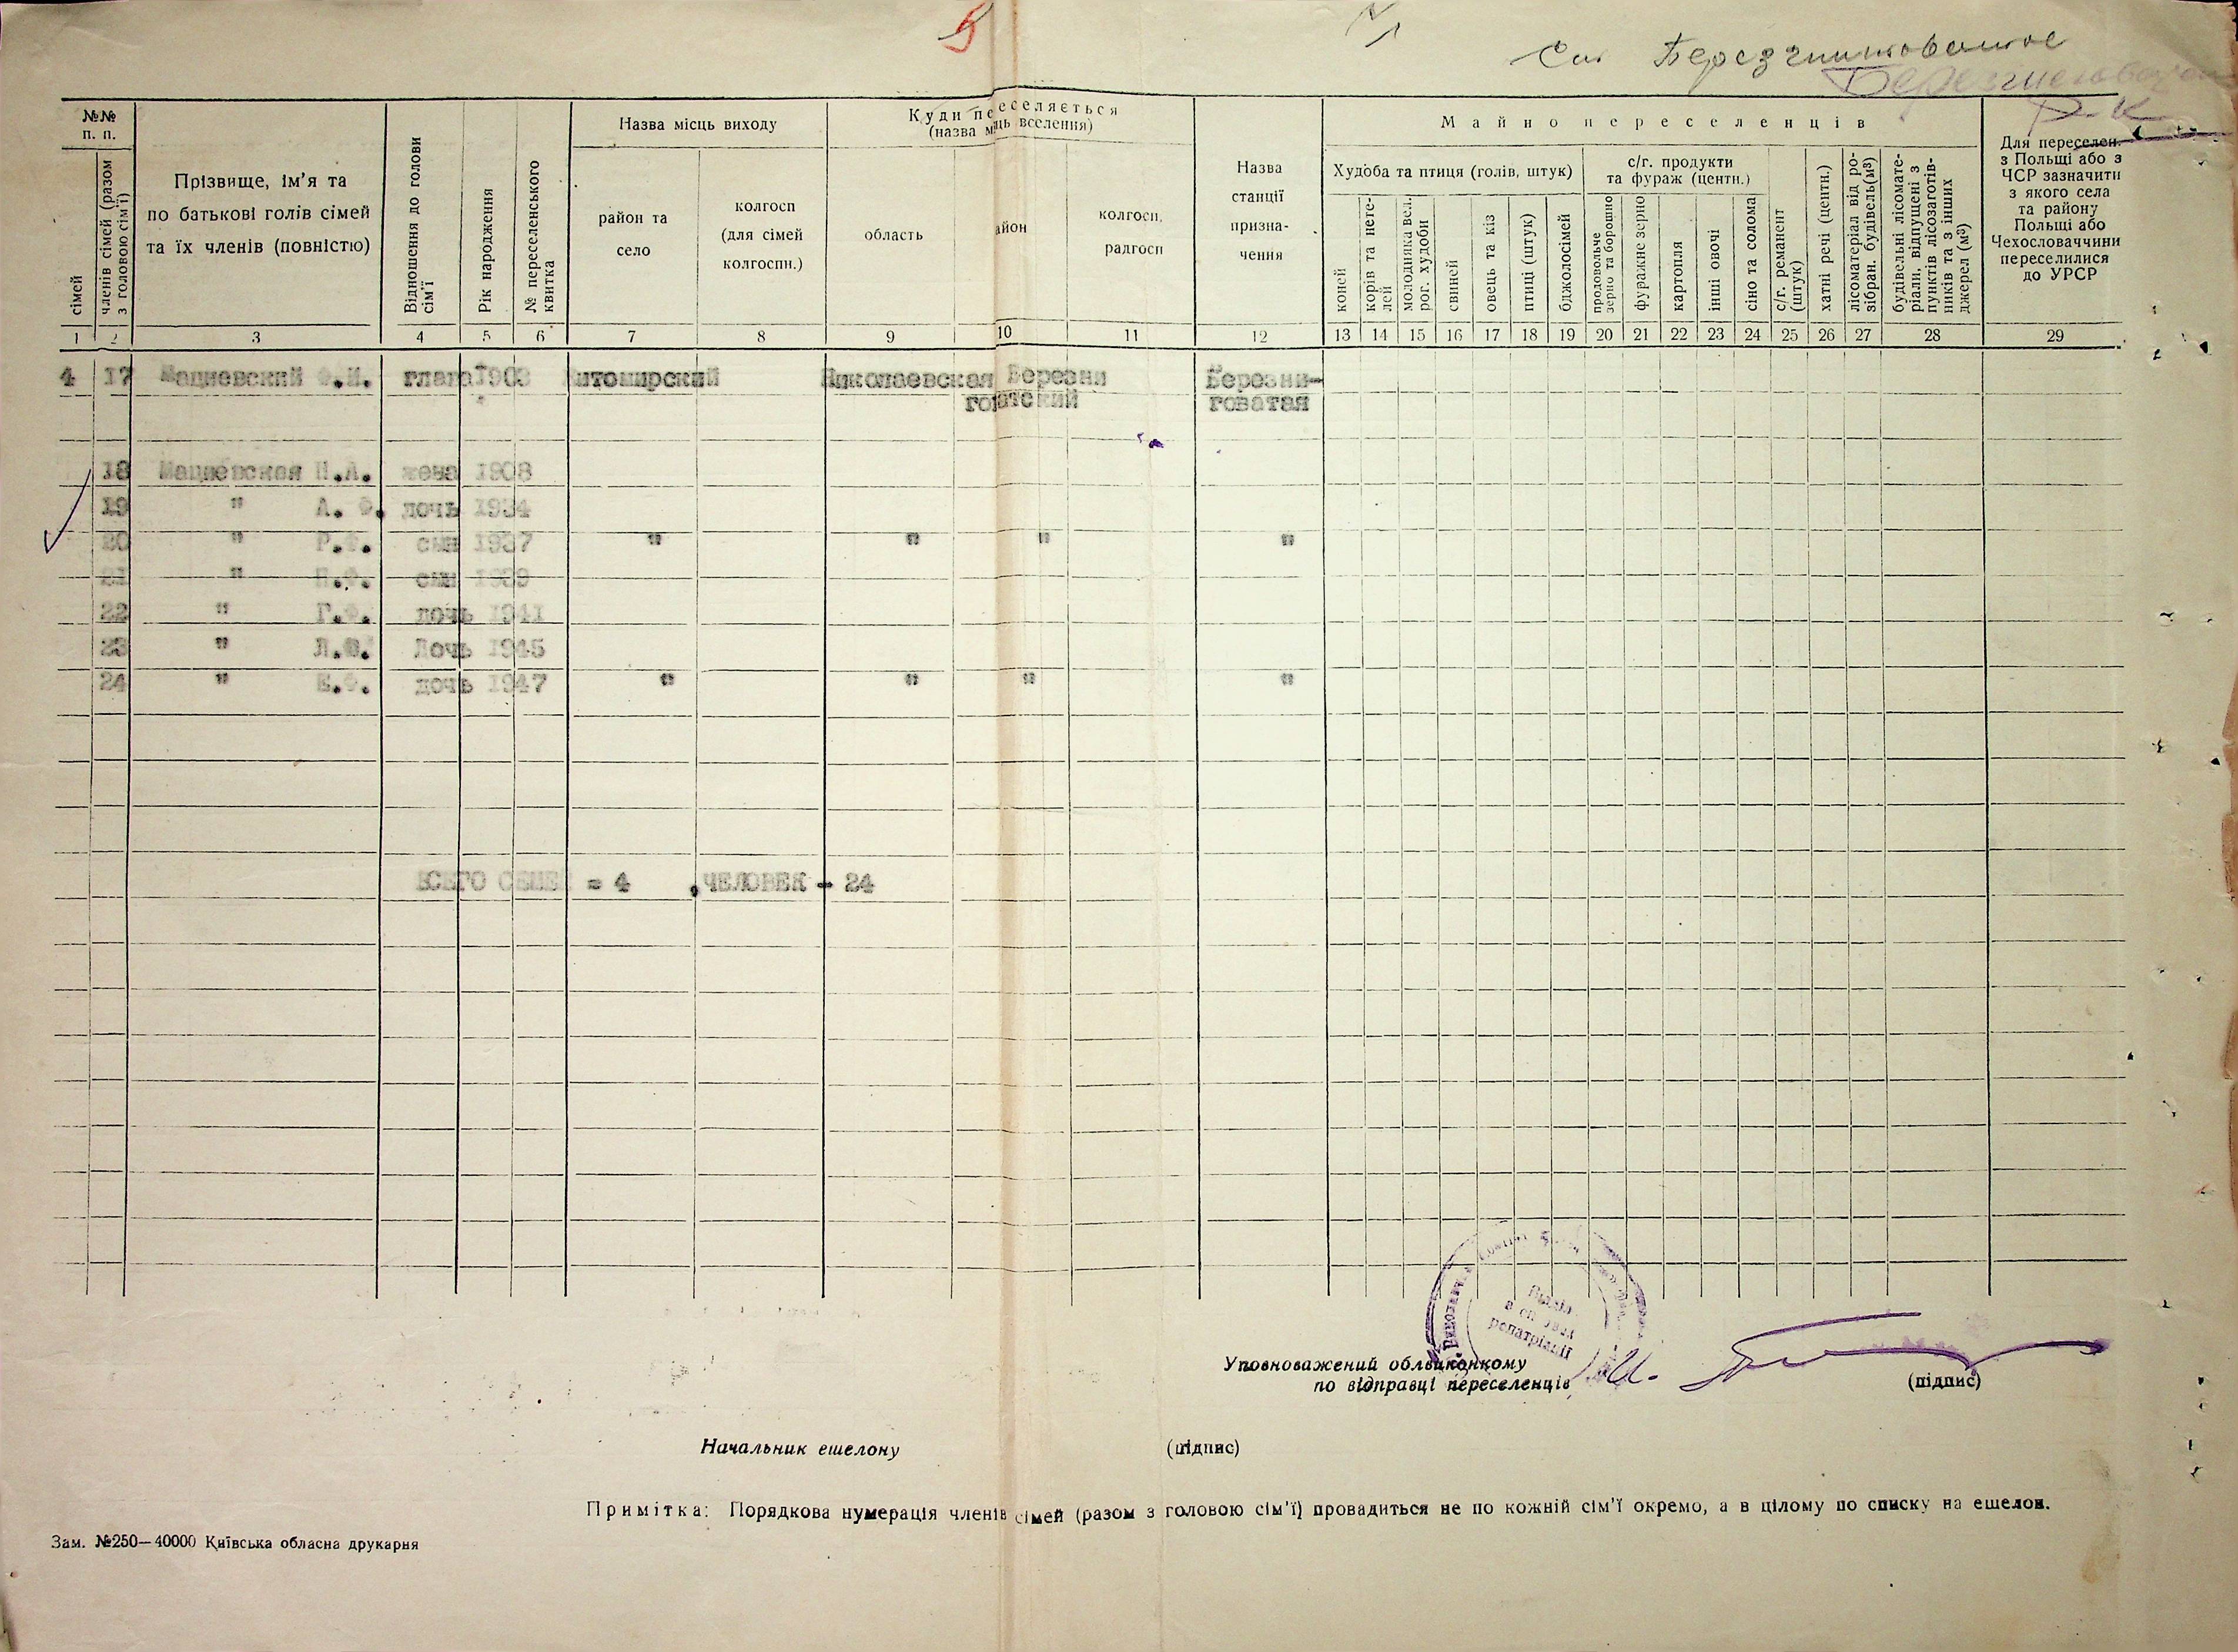 Березниговатое
№№ п. п.
сімей
членів сімей (разом з головою сім'ї)
Прізвище, ім'я та
по батькові голів сімей
та їх членів (повністю)
Відношення до голови сім'ї
Рік народження
№ переселенського квитка
Назва місць виходу
район та
село
колгосп
(для сімей
колгоспн.)
Куди переселяється
(назва місць вселення)
область
район
колгосп,
радгосп
Назва
станції
призна-
чення
Майно переселенців
Худоба та птиця (голів, штук)
коней
корів та нете-
лей
молодняка вел.
рог. худоби
свиней
овець та кіз
птиці (штук)
бджолосімей
с/г. продукти
та фураж (центн.)
продовольче
зерно та борошно
фуражне зерно
картопля
інші овочі
сіно та солома
с/г. реманент
(штук)
хатні речі (центн.)
лісоматеріал від ро-
зібран. будівель (м³)
будівельні лісомате-
ріали, відпущені з
пунктів лісозаготів-
ників та з інших
джерел (м³)
Для переселен.
з Польщі або з
ЧСР зазначити
з якого села
та району
Польщі або
Чехословаччини
переселилися
до УРСР
1 2 3 4 5 6 7 8 9 10 11 12 13 14 15 16 17 18 19 20 21 22 23 24 25 26 27 28 29
4 17 Мациевский Ф.И. глава 1903 Житомирский Николаевская Березни Березни-
говатский говатая
18 Мациевская П.А. жена 1908
19 " А. Ф. дочь 1934
20 " Р.Ф. сын 1937 " " " "
21 " П.Ф. сын 1939
22 " Г.Ф. дочь 1941
23 " Л.Ф. Дочь 1945
24 " Е.Ф. дочь 1947 " " " "
ВСЕГО СЕМЕЙ = 4 , ЧЕЛОВЕК - 24
репатріації
Уповноважений облвиконкому
по відправці переселенців
(підпис)
Начальник ешелону (підпис)
Примітка: Порядкова нумерація членів сімей (разом з головою сім'ї) провадиться не по кожній сім'ї окремо, а в цілому по списку на ешелон.
Зам. №250—40000 Київська обласна друкарня